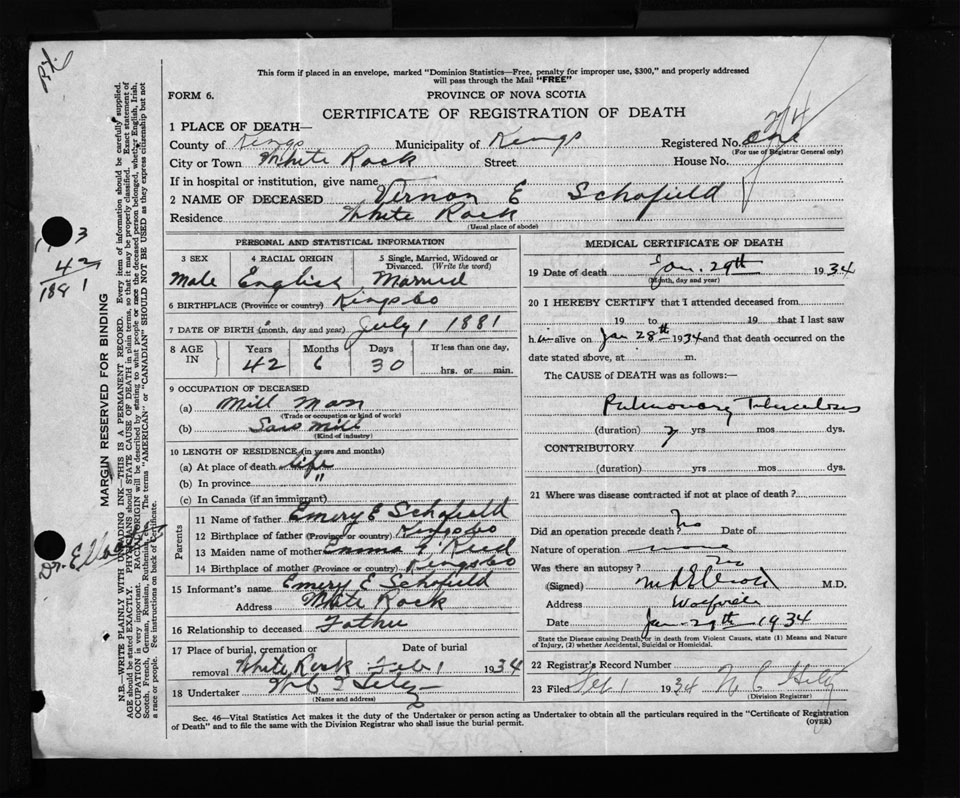 This form if placed in an envelope, marked "Dominion Statistics—Free, penalty for improper use, $300," and properly addressed
will pass through the Mail "FREE"
FORM 6.
PROVINCE OF NOVA SCOTIA
CERTIFICATE OF REGISTRATION OF DEATH
1 PLACE OF DEATH—
County of Kings Municipality of Kings Registered No. one
(For use of Registrar General only)
City or Town White Rock Street House No.
If in hospital or institution, give name
2 NAME OF DECEASED Vernon E Schofield
Residence White Rock
(Usual place of abode)
PERSONAL AND STATISTICAL INFORMATION
3 SEX 4 RACIAL ORIGIN 5 Single, Married, Widowed or Divorced. (Write the word)
Male English Married
6 BIRTHPLACE (Province or country) Kings Co
7 DATE OF BIRTH (month, day and year) July 1 1881
8 AGE IN Years Months Days If less than one day,
42 6 30 hrs. or min.
9 OCCUPATION OF DECEASED
(a) Mill Man
(Trade or occupation or kind of work)
(b) Saw Mill
(Kind of industry)
10 LENGTH OF RESIDENCE (in years and months)
(a) At place of death life
(b) In province "
(c) In Canada (if an immigrant)
Parents
11 Name of father Emery E Schofield
12 Birthplace of father (Province or country) Kings Co
13 Maiden name of mother Emma Reid
14 Birthplace of mother (Province or country) Kings Co
15 Informant's name Emery E Schofield
Address White Rock
16 Relationship to deceased Father
17 Place of burial, cremation or removal Date of burial
White Rock Feb 1 1934
18 Undertaker
(Name and address)
MEDICAL CERTIFICATE OF DEATH
19 Date of death Jan. 29th 1934
(Month, day and year)
20 I HEREBY CERTIFY that I attended deceased from
19 to 19 that I last saw
him alive on Jan 28th 1934 and that death occurred on the
date stated above, at m.
The CAUSE of DEATH was as follows:—
Pulmonary Tuberculosis
(duration) yrs mos dys.
CONTRIBUTORY
(duration) yrs mos dys.
21 Where was disease contracted if not at place of death?
Did an operation precede death? No Date of
Nature of operation none
Was there an autopsy? No
(Signed) M.D.
Address Wolfville
Date Jan-29th 1934
State the Disease causing Death, or in death from Violent Causes, state (1) Means and Nature
of Injury, (2) whether Accidental, Suicidal or Homicidal.
22 Registrar's Record Number
23 Filed Feb 1 1934
(Division Registrar)
Sec. 46—Vital Statistics Act makes it the duty of the Undertaker or person acting as Undertaker to obtain all the particulars required in the "Certificate of Registration
of Death" and to file the same with the Division Registrar who shall issue the burial permit.
(OVER)
MARGIN RESERVED FOR BINDING
N.B.—WRITE PLAINLY WITH UNFADING INK—THIS IS A PERMANENT RECORD. Every item of information should be carefully supplied.
AGE should be stated EXACTLY. PHYSICIANS should STATE CAUSE OF DEATH in plain terms, so that it may be properly classified. Exact statement of
OCCUPATION is very important. RACIAL ORIGIN will be described by stating to what people or race the deceased person belonged, whether English, Irish,
Scotch, French, German, Russian, Ruthenian, etc. The terms "AMERICAN" or "CANADIAN" SHOULD NOT BE USED as they express citizenship but not
a race or people. See instructions on back of certificate.
42
1881